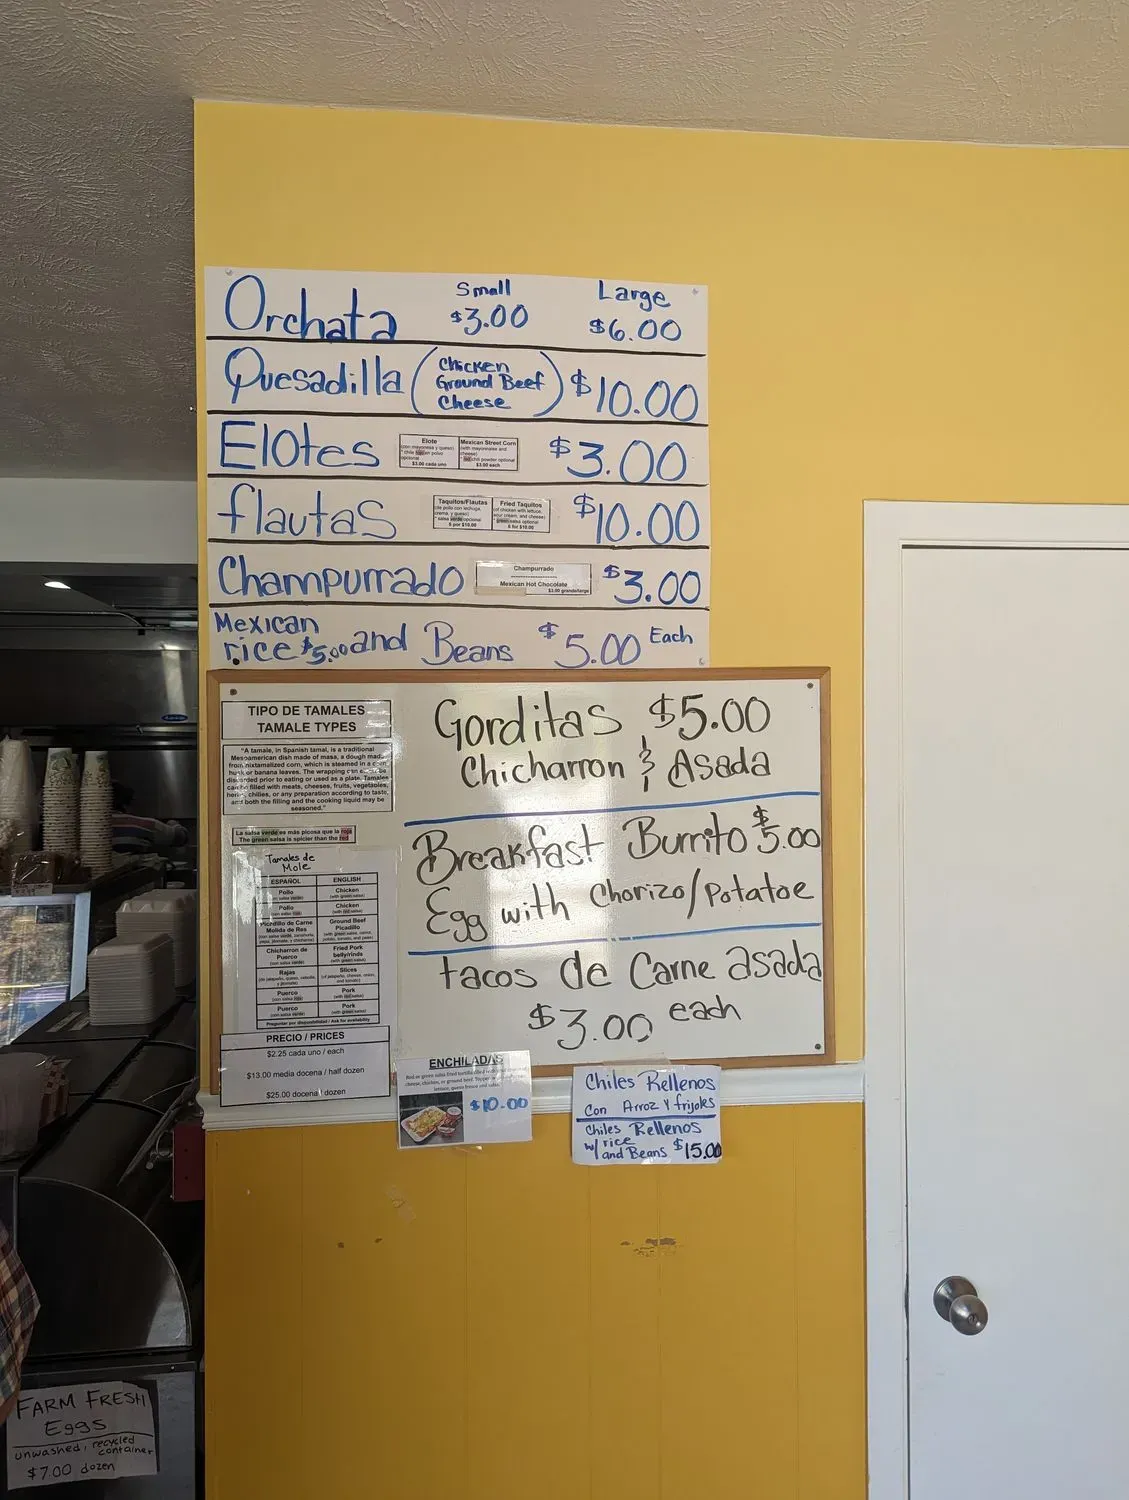 Orchata Small Large
$3.00 $6.00
Quesadilla (Chicken
Ground Beef
Cheese) $10.00
Elotes $3.00
Elote
(con mayonesa y queso)
* chile rojo en polvo
opcional
$3.00 cada uno
Mexican Street Corn
(with mayonnaise and
cheese)
* red chili powder optional
$3.00 each
flautas $10.00
Taquitos/Flautas
(de pollo con lechuga,
crema, y queso)
* salsa verde opcional
Fried Taquitos
(of chicken with lettuce,
sour cream, and cheese)
* green salsa optional
6 for $10.00
Champurrado $3.00
Champurrado
Mexican Hot Chocolate
$3.00 grande/large
Mexican
rice $5.00 and Beans $5.00 Each
TIPO DE TAMALES
TAMALE TYPES
"A tamale, in Spanish tamal, is a traditional
Mesoamerican dish made of masa, a dough made
from nixtamalized corn, which is steamed in a corn
husk or banana leaves. The wrapping can either be
discarded prior to eating or used as a plate. Tamales
can be filled with meats, cheeses, fruits, vegetables,
herbs, chilies, or any preparation according to taste,
and both the filling and the cooking liquid may be
seasoned."
La salsa verde es más picosa que la roja
The green salsa is spicier than the red
Tamales de
Mole
ESPAÑOL ENGLISH
Pollo
(con salsa verde)
Chicken
(with green salsa)
Pollo
(con salsa roja)
Chicken
(with red salsa)
Picadillo de Carne
Molida de Res
Ground Beef
Picadillo
Chicharron de
Puerco
(con salsa verde)
Fried Pork
belly/rinds
(with green salsa)
Rajas
Slices
Puerco
(con salsa roja)
Pork
(with red salsa)
Puerco
(con salsa verde)
Pork
(with green salsa)
Preguntar por disponibilidad / Ask for availability
PRECIO / PRICES
$2.25 cada uno / each
$13.00 media docena / half dozen
$25.00 docena / dozen
Gorditas $5.00
Chicharron & Asada
Breakfast Burrito $5.00
Egg with Chorizo/Potatoe
tacos de Carne asada
$3.00 each
ENCHILADAS
$10.00
Chiles Rellenos
Con Arroz Y frijoles
Chiles Rellenos
w/ rice
and Beans $15.00
FARM FRESH
Eggs
unwashed, recycled
container
$7.00 dozen